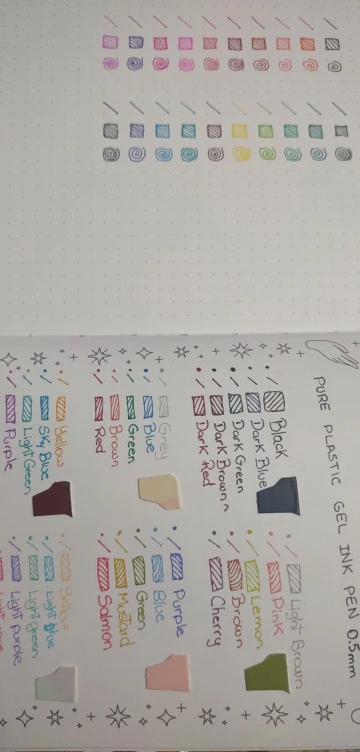 PURE PLASTIC GEL INK PEN 0.5mm
Black
Dark Blue
Dark Green
Dark Brown
Dark Red
Light Brown
Pink
Lemon
Brown
Cherry
Grey
Blue
Green
Brown
Red
Purple
Blue
Green
Mustard
Salmon
Yellow
Sky Blue
Light Green
Purple
Yellow
Light Blue
Light green
Light purple